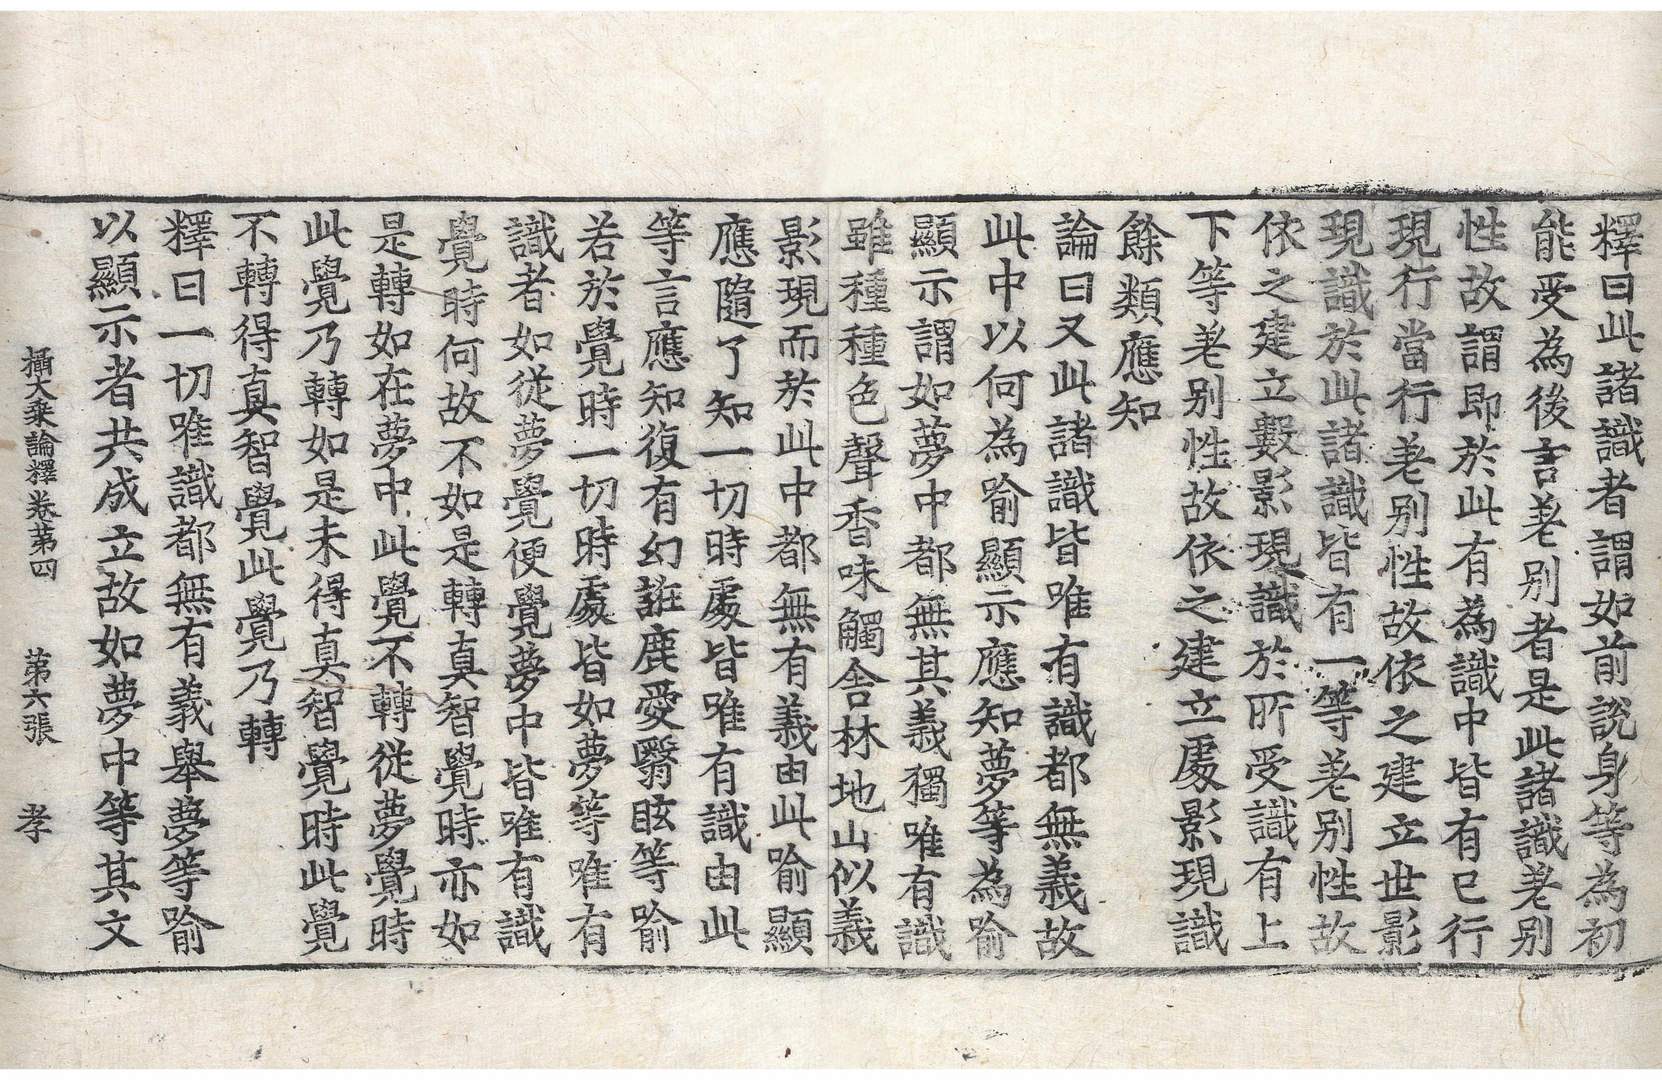 釋曰此諸識者謂如前說身等為初
能受為後言差別者是此諸識差別
性故謂即於此有為識中皆有已行
現行當行差別性故依之建立世影
現識於此諸識皆有一等差別性故
依之建立數影現識於所受識有上
下等差別性故依之建立處影現識
餘類應知
論曰又此諸識皆唯有識都無義故
此中以何為喻顯示應知夢等為喻
顯示謂如夢中都無其義獨唯有識
雖種種色聲香味觸舍林地山似義
影現而於此中都無有義由此喻顯
應隨了知一切時處皆唯有識由此
等言應知復有幻誑鹿愛翳眩等喻
若於覺時一切時處皆如夢等唯有
識者如從夢覺便覺夢中皆唯有識
覺時何故不如是轉真智覺時亦如
是轉如在夢中此覺不轉從夢覺時
此覺乃轉如是未得真智覺時此覺
不轉得真智覺此覺乃轉
釋曰一切唯識都無有義舉夢等喻
以顯示者共成立故如夢中等其文
攝大乘論釋卷第四 第六張 孝